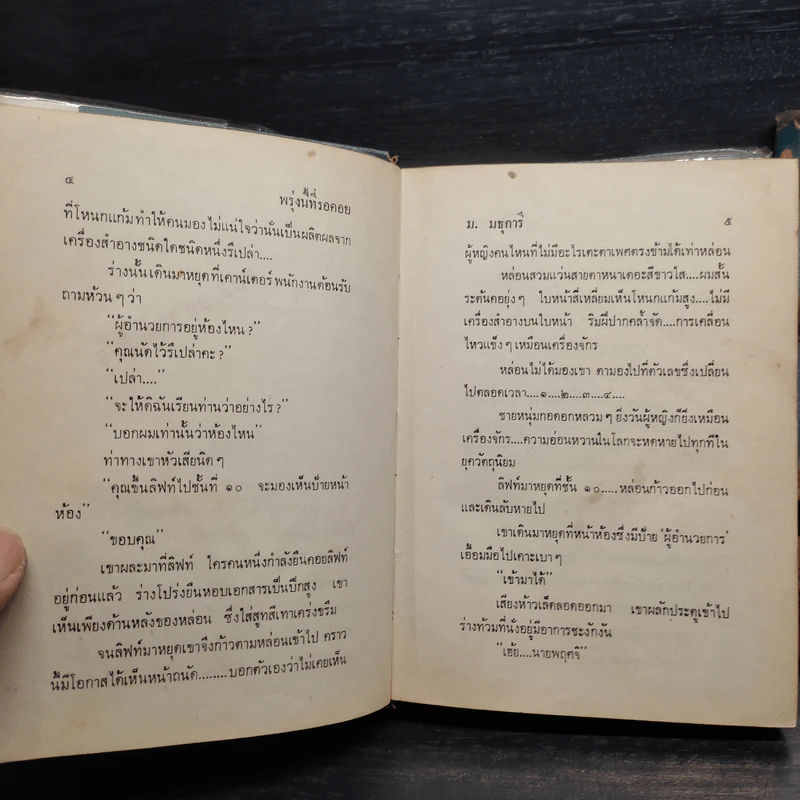 ๔
พรุ่งนี้ที่รอคอย
ที่โหนกแก้มทำให้คนมองไม่แน่ใจว่านั่นเป็นผลิตผลจาก
เครื่องสำอางชนิดใดชนิดหนึ่งรึเปล่า....
ร่างนั้นเดินมาหยุดที่เคาน์เตอร์พนักงานต้อนรับ
ถามห้วนๆว่า
“ผู้อำนวยการอยู่ห้องไหน?”
“คุณนัดไว้รึเปล่าคะ?”
“เปล่า....”
“จะให้ดิฉันเรียนท่านว่าอย่างไร?”
“บอกผมเท่านั้นว่าห้องไหน”
ท่าทางเขาหัวเสียนิดๆ
“คุณขึ้นลิฟท์ไปชั้นที่ ๑๐ จะมองเห็นป้ายหน้า
ห้อง”
“ขอบคุณ”
เขาผละมาที่ลิฟท์ ใครคนหนึ่งกำลังยืนคอยลิฟท์
อยู่ก่อนแล้ว ร่างโปร่งยืนหอบเอกสารเป็นปึกสูง เขา
เห็นเพียงด้านหลังของหล่อน ซึ่งใส่สูทสีเทาเคร่งขรึม
จนลิฟท์มาหยุดเขาจึงก้าวตามหล่อนเข้าไป คราว
นี้มีโอกาสได้เห็นหน้าถนัด........บอกตัวเองว่าไม่เคยเห็น
ม. มธุการี
๕
ผู้หญิงคนไหนที่ไม่มีอะไรเตะตาเพศตรงข้ามได้เท่าหล่อน
หล่อนสวมแว่นสายตาหนาเตอะสีขาวใส....ผมสั้น
ระต้นคอยุ่งๆ ใบหน้าสี่เหลี่ยมเห็นโหนกแก้มสูง....ไม่มี
เครื่องสำอางบนใบหน้า ริมฝีปากคล้ำจัด....การเคลื่อน
ไหวแข็งๆเหมือนเครื่องจักร
หล่อนไม่ได้มองเขา ตามองไปที่ตัวเลขซึ่งเปลี่ยน
ไปตลอดเวลา....๑....๒....๓....๔....
ชายหนุ่มกอดอกหลวมๆ ยิ่งวันผู้หญิงก็ยิ่งเหมือน
เครื่องจักร....ความอ่อนหวานในโลกจะหดหายไปทุกทีใน
ยุควัตถุนิยม
ลิฟท์มาหยุดที่ชั้น ๑๐.....หล่อนก้าวออกไปก่อน
และเดินลับหายไป
เขาเดินมาหยุดที่หน้าห้องซึ่งมีป้าย ‘ผู้อำนวยการ’
เอื้อมมือไปเคาะเบาๆ
“เข้ามาได้”
เสียงห้าวเล็ดลอดออกมา เขาผลักประตูเข้าไป
ร่างท้วมที่นั่งอยู่มีอาการชะงักงัน
“เฮ้ย....นายพฤศจิ”